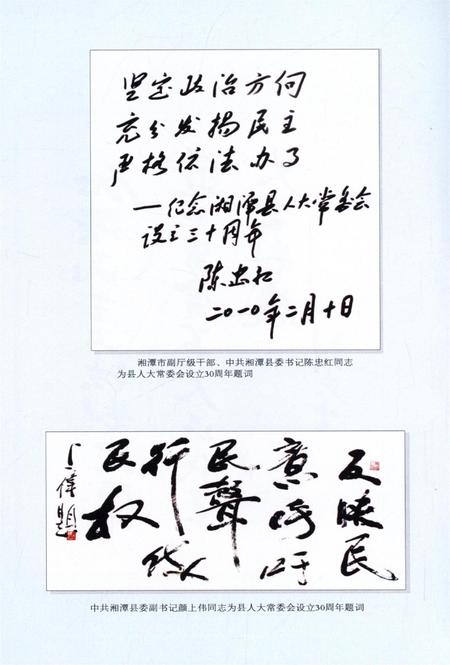 坚定政治方向
充分发扬民主
严格依法办事
——纪念湘潭县人大常委会
设立三十周年
陈忠红
二〇一〇年二月十日
湘潭市副厅级干部、中共湘潭县委书记陈忠红同志
为县人大常委会设立30周年题词
反映民
意呼吁
民聲
行使
民权
上偉題
中共湘潭县委副书记颜上伟同志为县人大常委会设立30周年题词